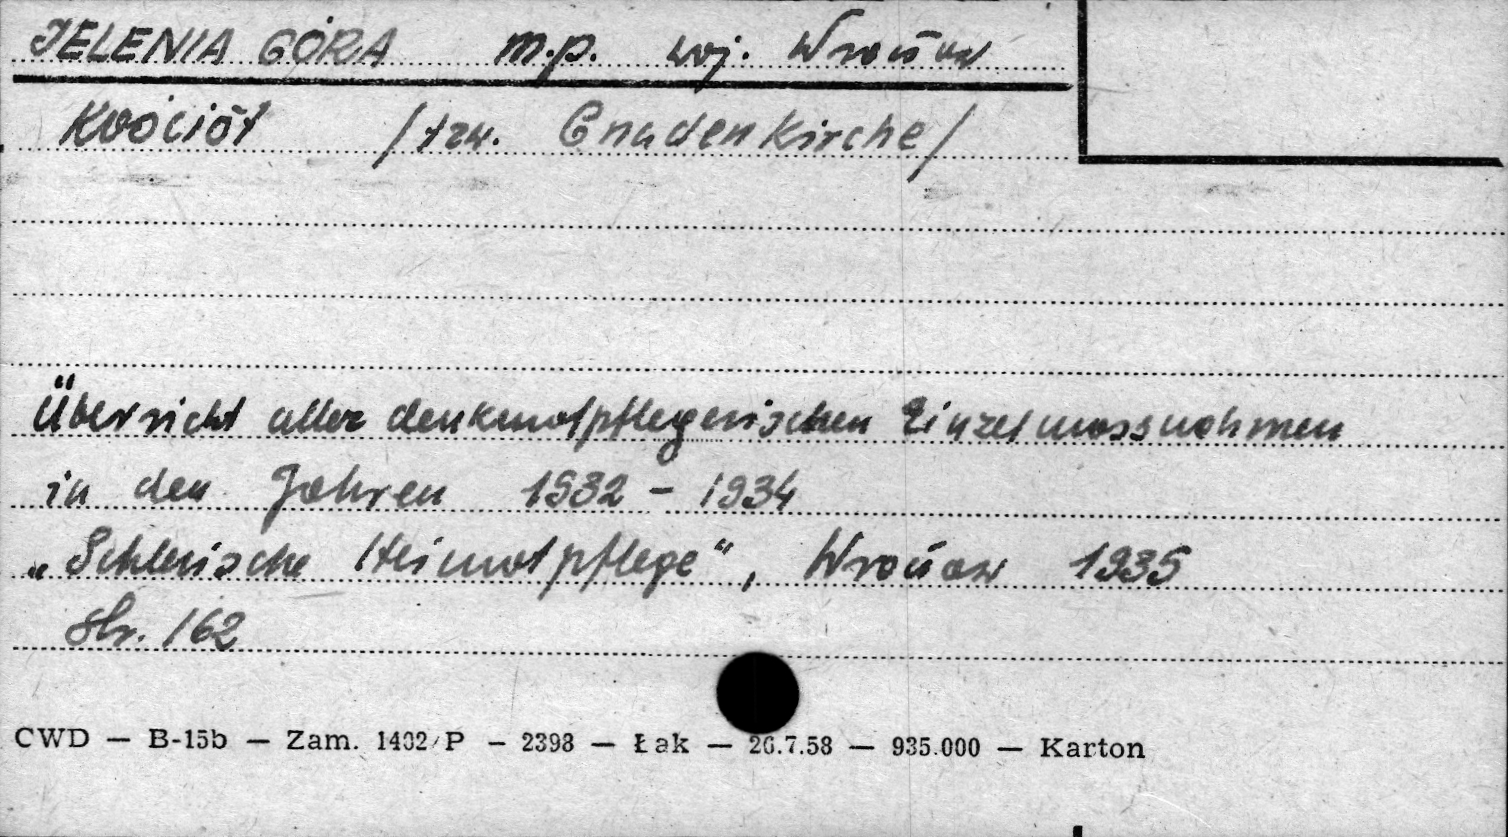 JELENIA GÓRA m.p. woj. Wrocław
Kościół /tzw. Gnadenkirche/
Übersicht aller denkmalpflegerischen Einzelmassnahmen
in den Jahren 1932 - 1934
„Schlesische Heimatpflege“, Wrocław 1935
str. 162
CWD — B-15b — Zam. 1402/P — 2398 — Łak — 26.7.58 — 935.000 — Karton